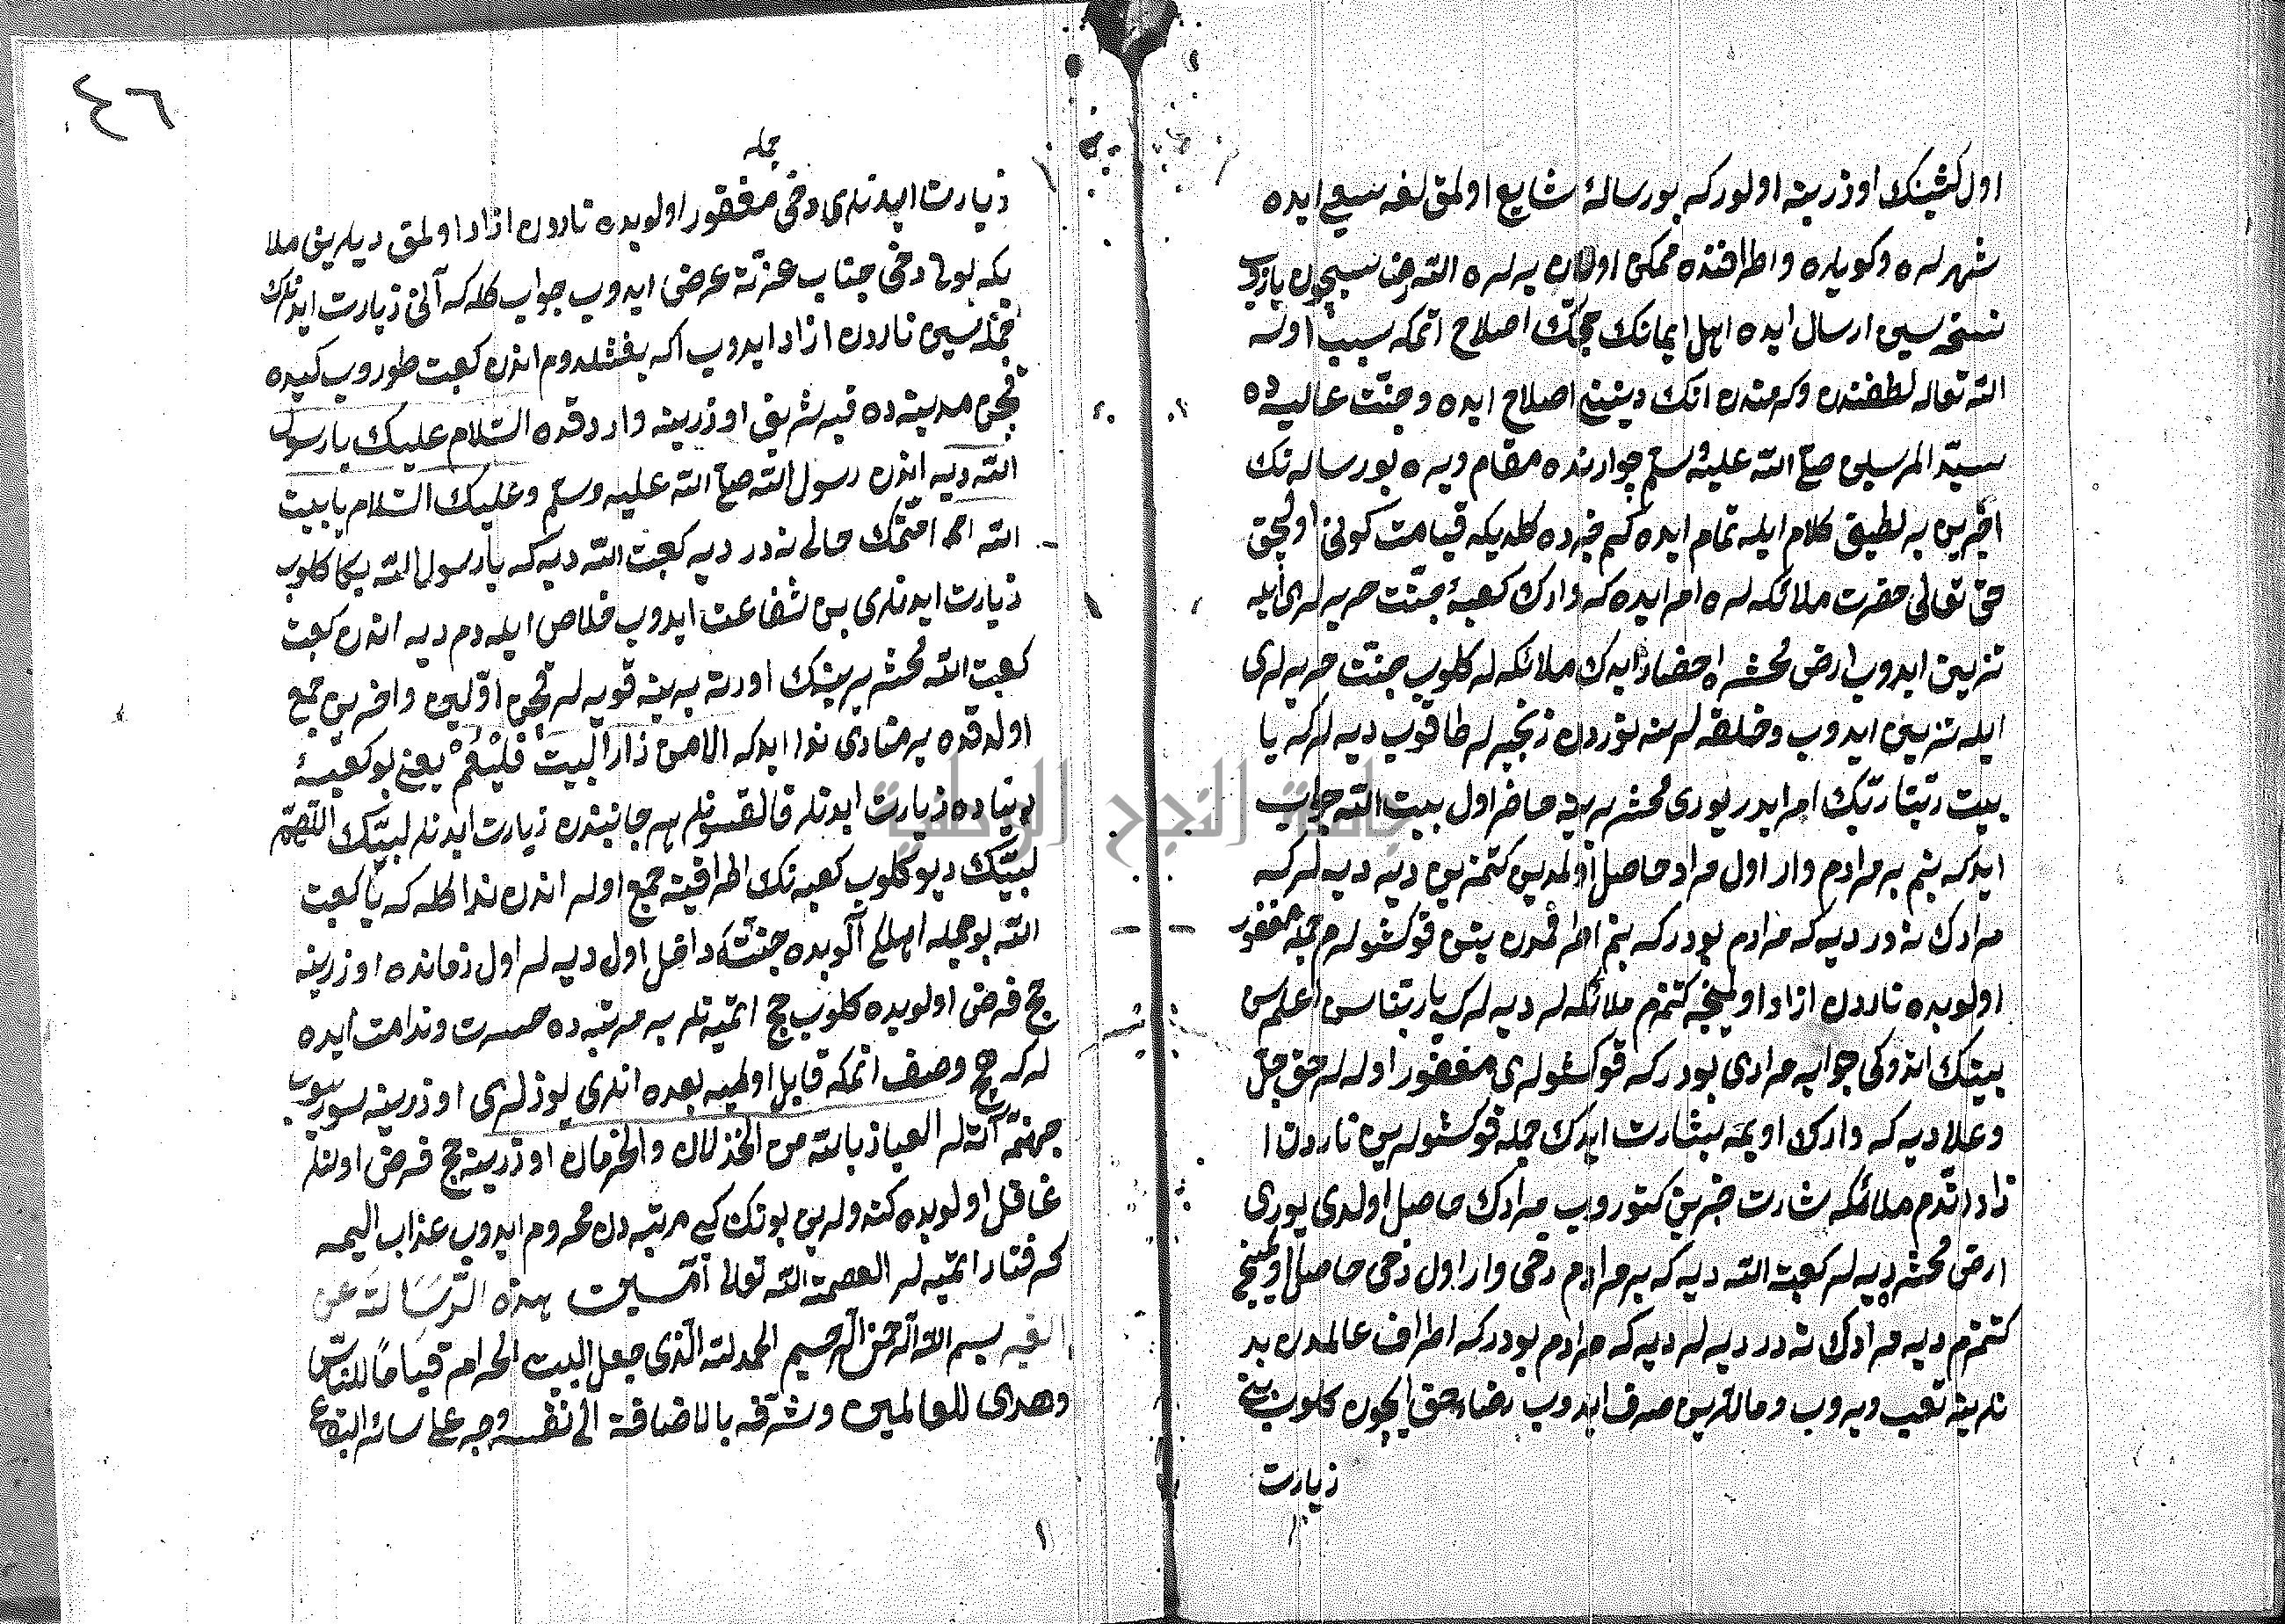 اول كشينك اوزرينه اولوركه بو رسالۀ شايع اولمق لغه سعى ايده
شهرلره وكويلره و اطرافنده ممكن اولان يرلره الله رضاسيچون يازوب
نسخه سى ارسال ايده اهل ايمانك حجّك اصلاح اتمكه سبب اوله
الله تعاله لطفندن وكرمندن انك دينينى اصلاح ايده و جنّت عاليه ده
سيّد المرسلين صلّى الله عليه وسلّم جوارنده مقام ويره بو رساله نك
اخرين بر لطيف كلام ايله تمام ايده كم خبرده كلديكه قيامت كونى اوليجق
حق تعالى حضرت ملائكه لره امر ايده كه وارك كعبۀ جنّت حريرلرى ايله
تزيين ايدوب ارض محشره احضار ايدك ملائكه لر كلوب جنّت حريرلرى
ايله تزيين ايدوب و خلقه لرينه نوردن زنجيرلر طاقوب ديه لر كه يا
بيت ربّنا ربّك امر ايدر يورى محشر يرينه حاضر اول بيت الله جواب
ايدكه بنم بر مرادم وار اول مراد حاصل اولمدين كتمزين ديه ديه لركه
مرادك نه در ديه كه مرادم بودركه بنم اطرافمدن يتن قوكشولرم جمله مغفور
اولوبده ناردن ازاد اولمينجه كتمزم ملائكه لر ديه لركه يا ربّنا سن اعلمسن
بيتك اندوكى جوابه مرادى بودركه قوكشولرى مغفور اوله لر حق جلّ
و علا ديه كه وارك اويمه بشارت ايدك جمله قوكشولرين ناردن ا
زاد اتدم ملائكه شارت خبرين كتوروب مرادك حاصل اولدى يورى
ارض محشره ديه لر كعبت الله ديه كه بر مرادم دخى وار اول دخى حاصل اولمينجه
كتمزم ديه مرادك نه در ديه لر ديه كه مرادم بودركه اطراف عالمدن بد
نلرينه تعب ويروب و ماللرين صرف ايدوب رضاء حق ايچون كلوب بنى
زيارت
٤٦
جمله
زيارت ايدنلرى دخى مغفور اولوبده ناردن ازاد اولمق ديلرين ملا
يكه بونى دخى جناب عزته عرض ايدوب جواب كله كه آنى زيارت ايدنلرك
جمله سين ناردن ازاد ايدوب اكه بغشلدم اندن كعبت طوروب كيده
قچن مدينه ده قبه شريفى اوزرينه واردقده السّلام عليك يا رسول
الله ديه اندن رسول الله صلّى الله عليه وسلّم وعليك السّلام يا بيت
الله امتمك حالى نه در ديه كعبت الله ديه كه يا رسول الله بكا كلوب
زيارت ايدنلرى بن شفاعت ايدوب خلاص ايله دم ديه اندن كعبت
كعبت الله محشر يرينك اورته يرينه قويه لر قچن اوّلين و اخرين جمع
اولدقده بر منادى ندا ايدكه الا من زار البيت فليقم يعنى بو كعبۀ
دنياده زيارت ايدنلر قالقسونلر هر جانبندن زيارت ايدنلر لبيّك اللّهمّ
لبيّك ديو كلوب كعبه نك اطرافينه جمع اوله اندن ندا كله كه يا كعبت
الله بو جمله اهلكى آلوبده جنّته داخل اول ديه لر اول زمانده اوزرينه
حج فرض اولوبده كلوب حج اتميه نلر بر مرتبه ده حسرت وندامت ايده
لركه حج وصف اتمكه قابل اولميه بعده انلرى يوزلرى اوزرينه سوريوب
جهنّمه آته لر العياذ بالله من الخذلان والحرمان اوزرينه حج فرض اولنلر
غافل اولوبده كندولرين بونك كبى مرتبه دن محروم ايدوب عذاب اليمه
كرفتار اتميه لر العصمة الله تعالى تمّت هذه الرّسالة عن
بسم الله الرّحمن الرّحيم الحمد لله الّذى جعل البيت الحرام قياما للنّاس
وهدى للعالمين وشرّفه بالاضافة الى نفسه وجه على سائر البقاع
جامعة النجاح الوطنية